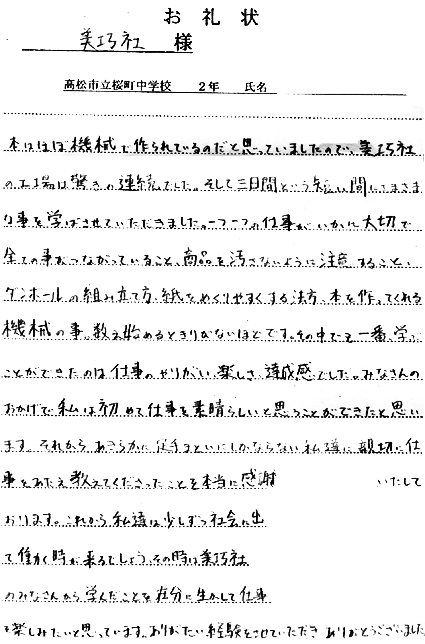 お礼状
美巧社 様
高松市立桜町中学校 2年 氏名
本はほぼ機械で作られているのだと思っていましたので、美巧社
の工場は驚きの連続でした。そして三日間という短い間にさまざま
な事を学ばせていただきました。一つ一つの仕事がいかに大切で
全ての事がつながっていること、商品を汚さないように注意すること、
ダンボールの組み立て方、紙をめくりやすくする法方、本を作ってくれる
機械の事。教え始めるときりがないほどです。その中でも一番、学ぶ
ことができたのは仕事のやりがい、楽しさ、達成感でした。みなさんの
おかげで私は初めて仕事を素晴らしいと思うことができたと思い
ます。それからあきらかに足手まといにしかならない私達に親切に仕
事をあたえ教えてくださったことを本当に感謝 いたして
おります。これから私達は少しずつ社会に出
て働く時が来るでしょう。その時は美巧社
のみなさんから学んだことを存分に生かして仕事
を楽しみたいと思っています。ありがたい経験をさせていただきありがとうございました